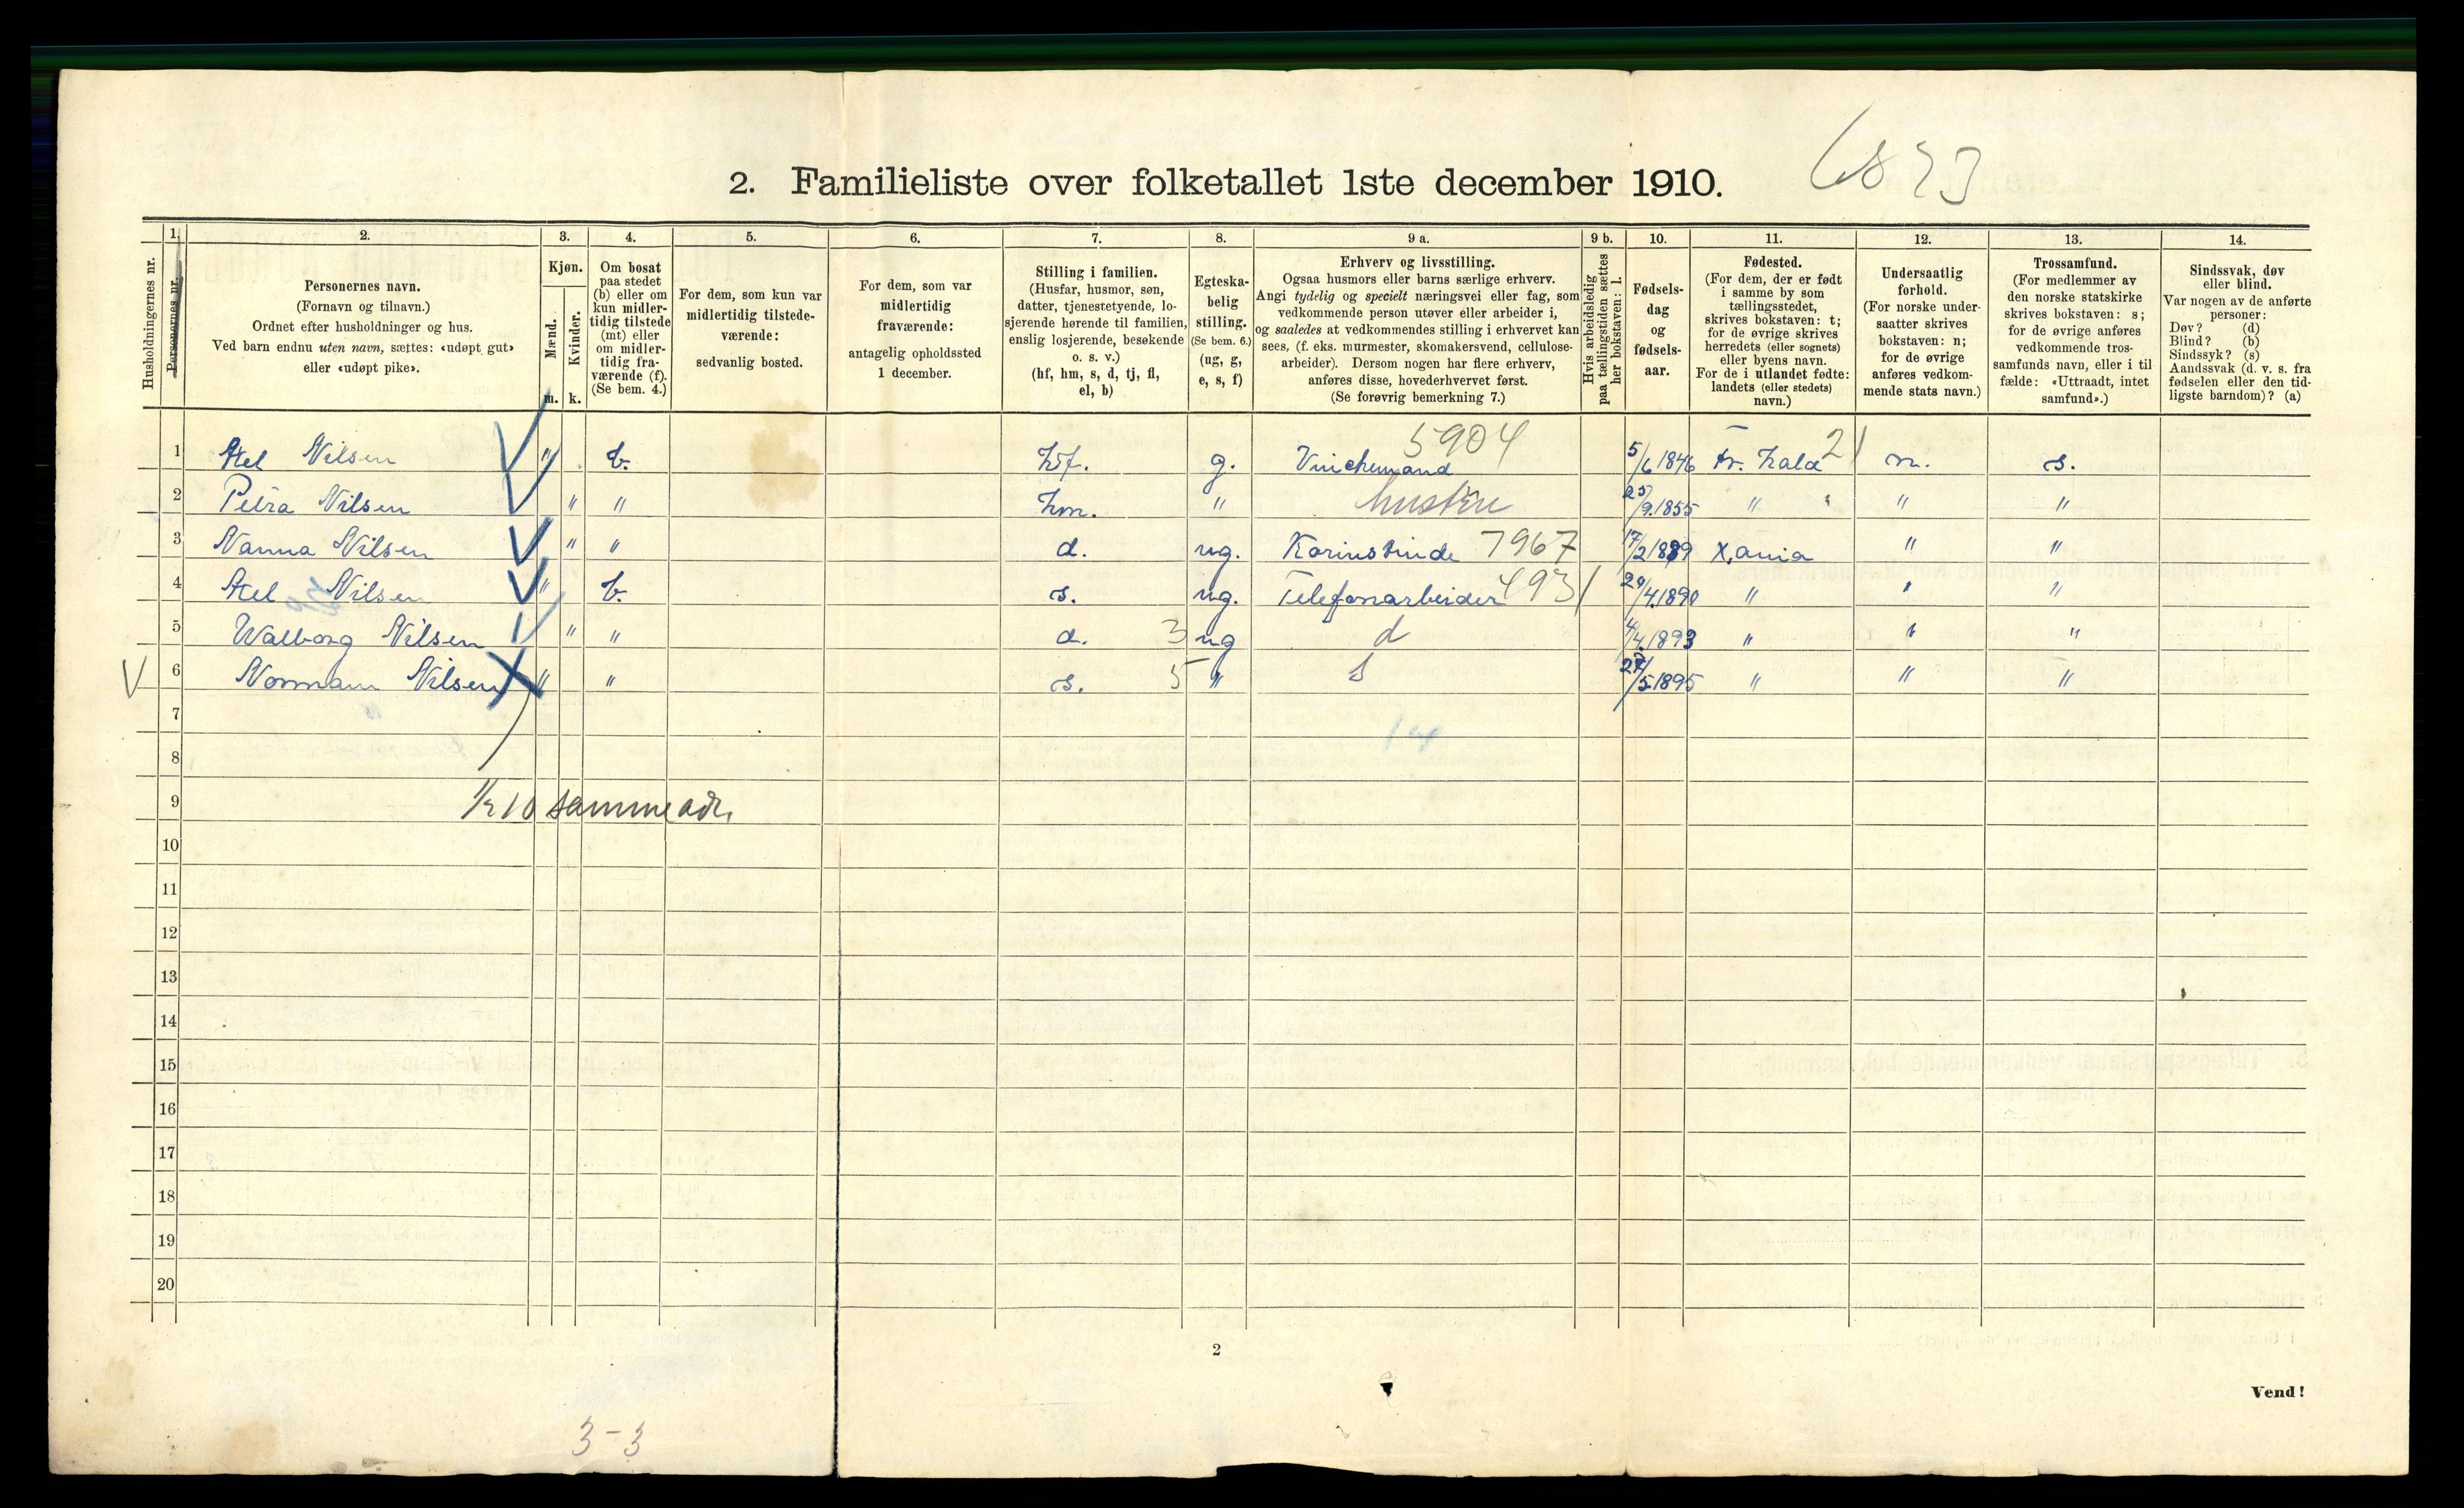 6833
2. Familieliste over folketallet 1ste december 1910.
Husholdningernes nr.
1. Personernes nr.
2.
Personernes navn.
(Fornavn og tilnavn.)
Ordnet efter husholdninger og hus.
Ved barn endnu uten navn, sættes: «udøpt gut»
eller «udøpt pike».
3.
Kjøn.
Mænd. Kvinder.
m. k.
4.
Om bosat
paa stedet
(b) eller om
kun midler-
tidig tilstede
(mt) eller
om midler-
tidig fra-
værende (f).
(Se bem. 4.)
5.
For dem, som kun var
midlertidig tilstede-
værende:
sedvanlig bosted.
6.
For dem, som var
midlertidig
fraværende:
antagelig opholdssted
1 december.
7.
Stilling i familien.
(Husfar, husmor, søn,
datter, tjenestetyende, lo-
sjerende hørende til familien,
enslig losjerende, besøkende
o. s. v.)
(hf, hm, s, d, tj, fl,
el, b)
8.
Egteska-
belig
stilling.
(Se bem. 6.)
(ug, g,
e, s, f)
9 a.
Erhverv og livsstilling.
Ogsaa husmors eller barns særlige erhverv.
Angi tydelig og specielt næringsvei eller fag, som
vedkommende person utøver eller arbeider i,
og saaledes at vedkommendes stilling i erhvervet kan
sees, (f. eks. murmester, skomakersvend, cellulose-
arbeider). Dersom nogen har flere erhverv,
anføres disse, hovederhvervet først.
(Se forøvrig bemerkning 7.)
9 b.
Hvis arbeidsledig
paa tællingstiden sættes
her bokstaven: l.
10.
Fødsels-
dag
og
fødsels-
aar.
11.
Fødested.
(For dem, der er født
i samme by som
tællingsstedet,
skrives bokstaven: t;
for de øvrige skrives
herredets (eller sognets)
eller byens navn.
For de i utlandet fødte:
landets (eller stedets)
navn.)
12.
Undersaatlig
forhold.
(For norske under-
saatter skrives
bokstaven: n;
for de øvrige
anføres vedkom-
mende stats navn.)
13.
Trossamfund.
(For medlemmer av
den norske statskirke
skrives bokstaven: s;
for de øvrige anføres
vedkommende tros-
samfunds navn, eller i til
fælde: «Uttraadt, intet
samfund».)
14.
Sindssvak, døv
eller blind.
Var nogen av de anførte
personer:
Døv? (d)
Blind? (b)
Sindssyk? (s)
Aandssvak (d. v. s. fra
fødselen eller den tid-
ligste barndom)? (a)
1 Axel Nilsen " b. hf. g. Vinchemand 5904 5/6 1846 Fr. hald 21 n. s.
2 Petra Nilsen " " hm. " hustru 25/9.1855 " " " "
3 Nanna Nilsen " " d. ug. Korinstinde 7967 17/2 1889 X,ania " "
4 Axel Nilsen " b. s. ug. Telefonarbeider 4931 29/4.1890 " " "
5 Walborg Nilsen " " d. 3 ug d 4/4.1893 " " "
6 Normann Nilsen " " s. 5 " s 27/5.1895 " " "
7
14
8
9 1/2 10 samme adr.
10
11
12
13
14
15
16
17
18
19
20
2
Vend!
3-3